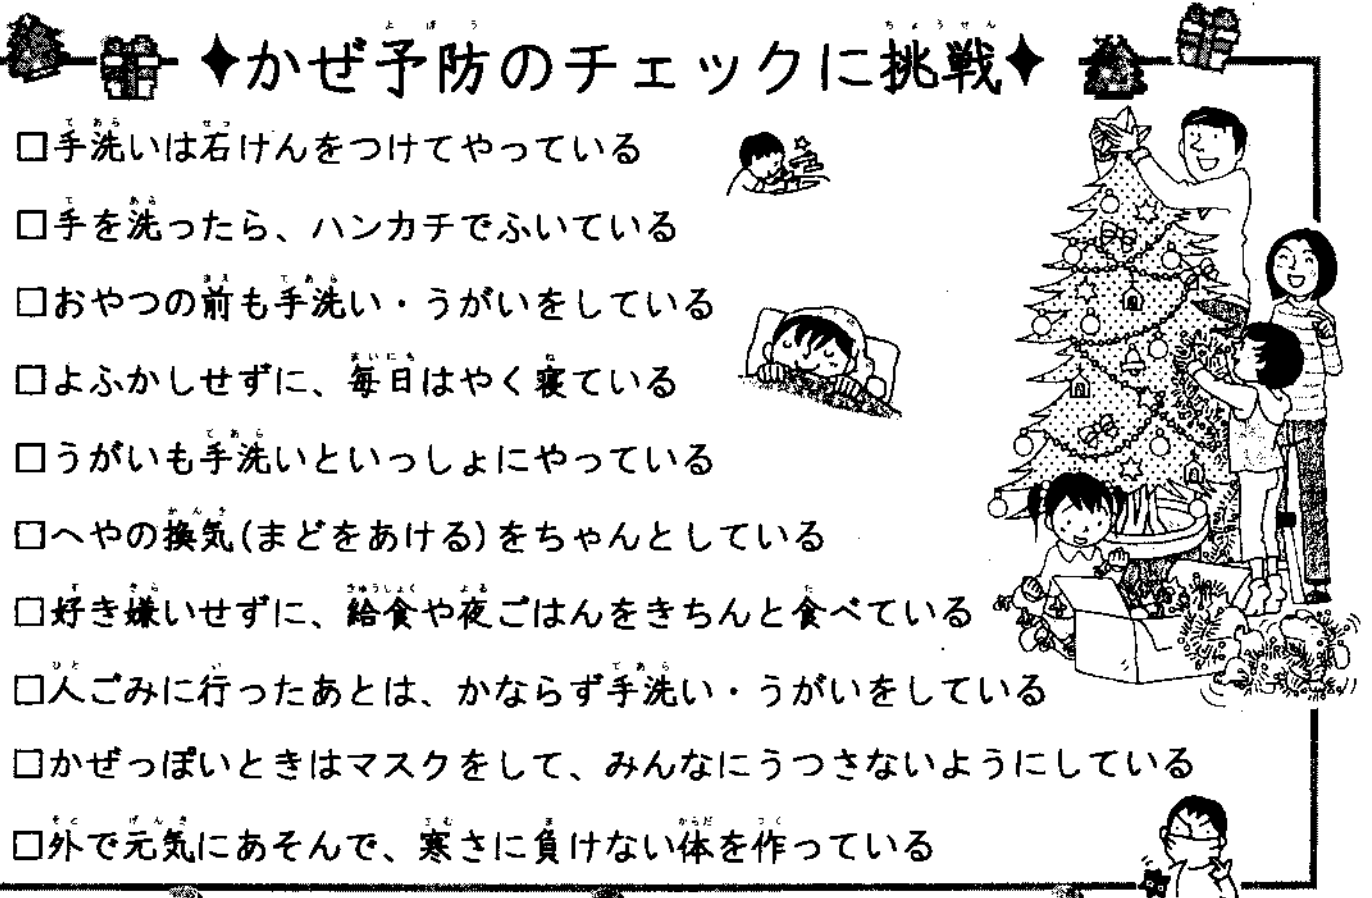 ✦かぜ予防のチェックに挑戦✦
□手洗いは石けんをつけてやっている
□手を洗ったら、ハンカチでふいている
□おやつの前も手洗い・うがいをしている
□よふかしせずに、毎日はやく寝ている
□うがいも手洗いといっしょにやっている
□へやの換気(まどをあける)をちゃんとしている
□好き嫌いせずに、給食や夜ごはんをきちんと食べている
□人ごみに行ったあとは、かならず手洗い・うがいをしている
□かぜっぽいときはマスクをして、みんなにうつさないようにしている
□外で元気にあそんで、寒さに負けない体を作っている